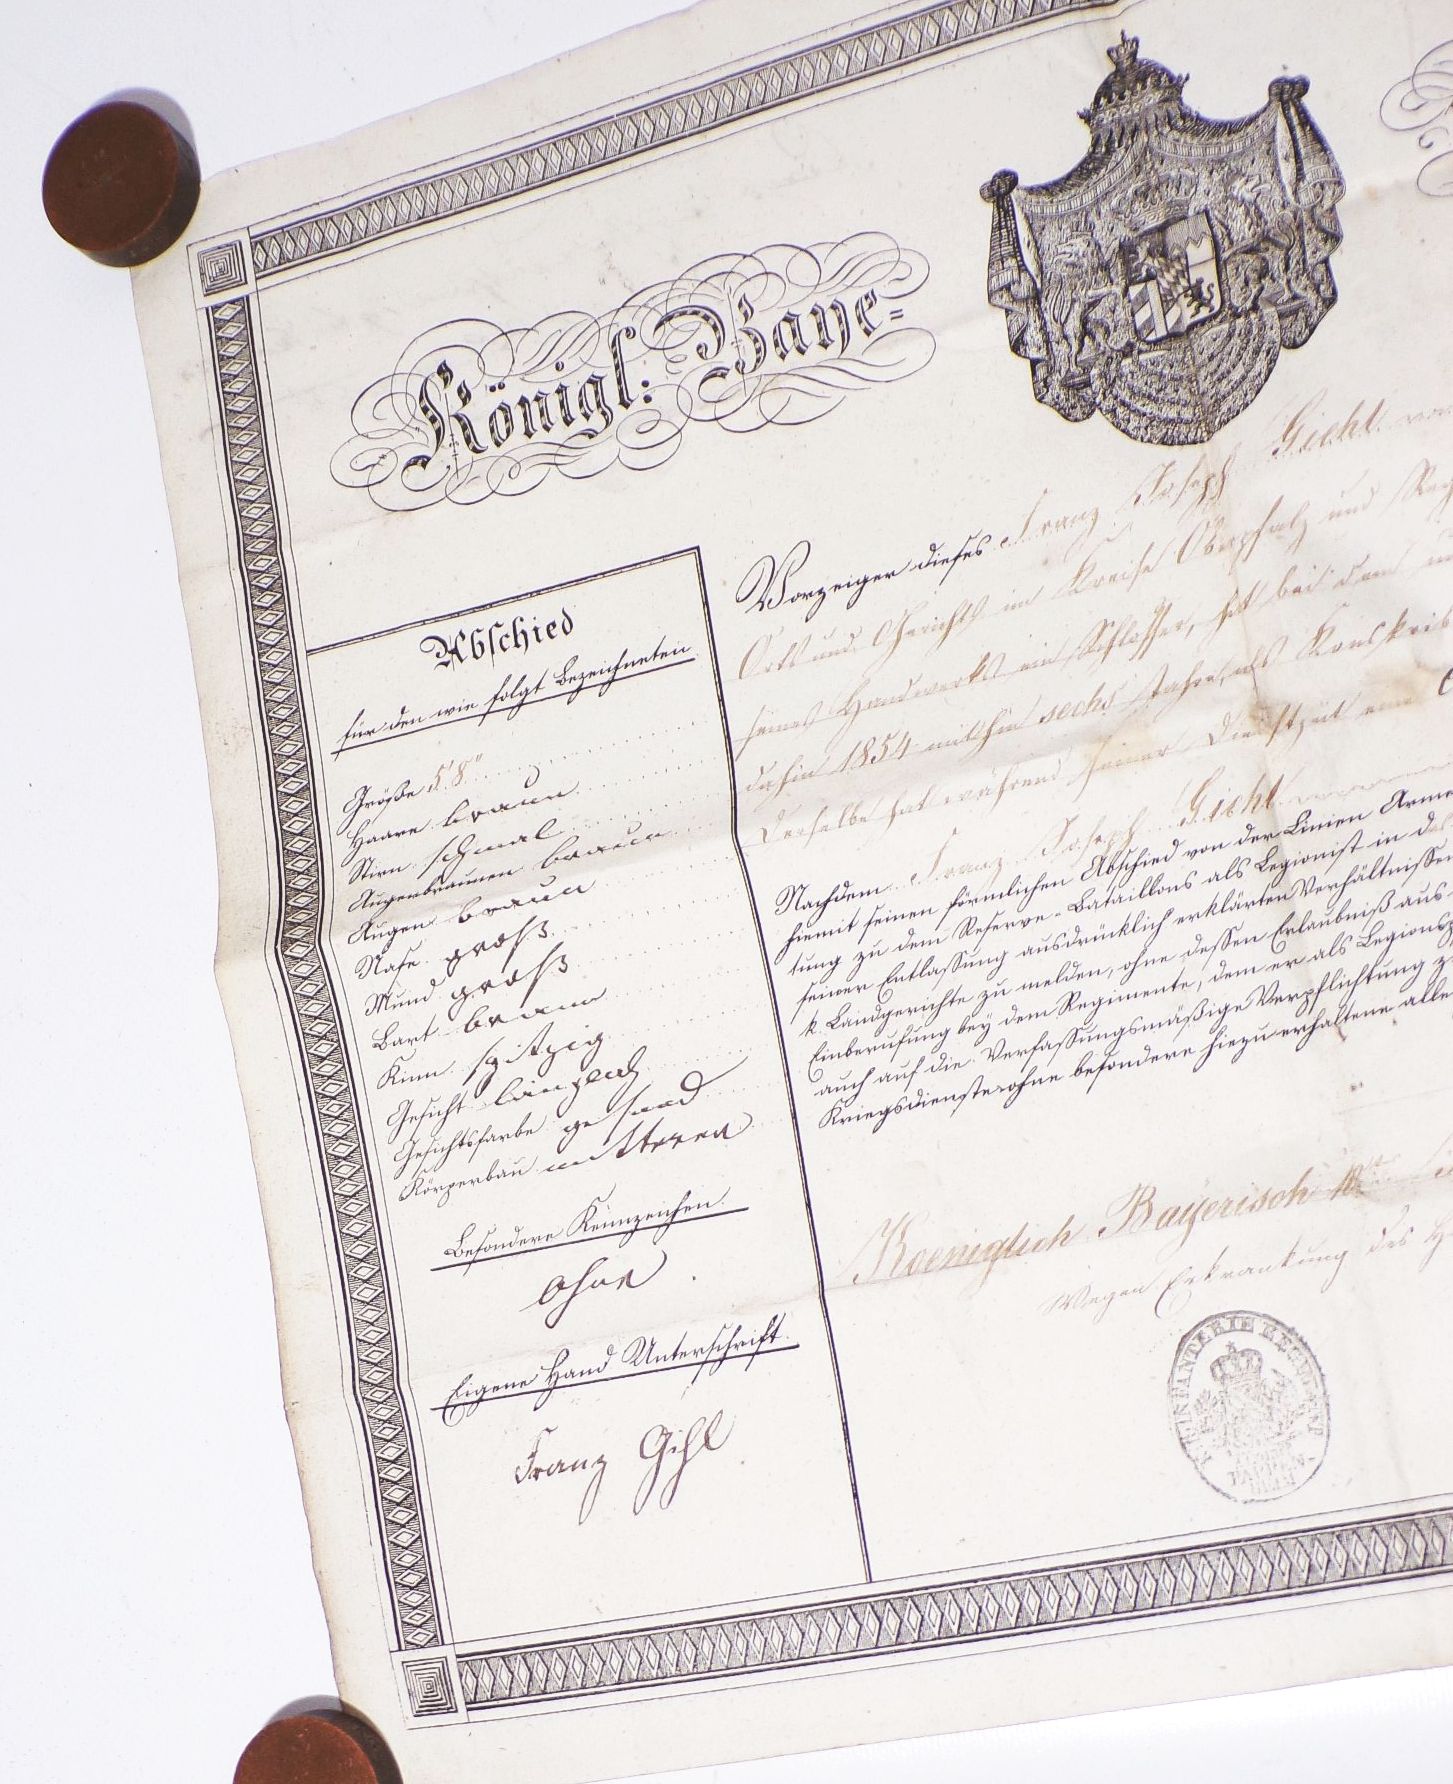 Königl. Baye=
Abschied
für den wie folgt Bezeichneten.
Größe 5' 8"
Haare braun
Stirn schmal
Augenbraunen braun
Augen braun
Nase groß
Mund groß
Bart braun
Kinn spitzig
Gesicht länglich
Gesichtsfarbe gesund
Körperbau mitteren
Besondere Kennzeichen.
Ohne
Eigene Hand Unterschrift.
Franz Gihl
Vorzeiger dieses Franz Joseph Giehl von
Orts und Gerichts im Kreise Oberpfalz und Reg
seines Handwerks ein Schlosser, hat bei dem
dahin 1854 mithin sechs Jahre, als Konskrib
Derselbe hat während seiner Dienstzeit eine
Nachdem Franz Joseph Giehl
hiemit seinen förmlichen Abschied von der Linien Arme
tung zu dem Reserve-Bataillons als Legionist in d
seiner Entlassung ausdrücklich erklärten Verhältnissen
k. Landgerichte zu melden, ohne dessen Erlaubniß aus
Einberufung bey dem Regimente, dem er als Legions
auch auf die Verfassungsmäßige Verpflichtung z
Kriegsdienste ohne besondere hiezu erhaltene alle
Koeniglich Bayerisch 10te
Wegen Erkrankung des
INFANTERIE REGIMENT
PAPPEN-
HEIM